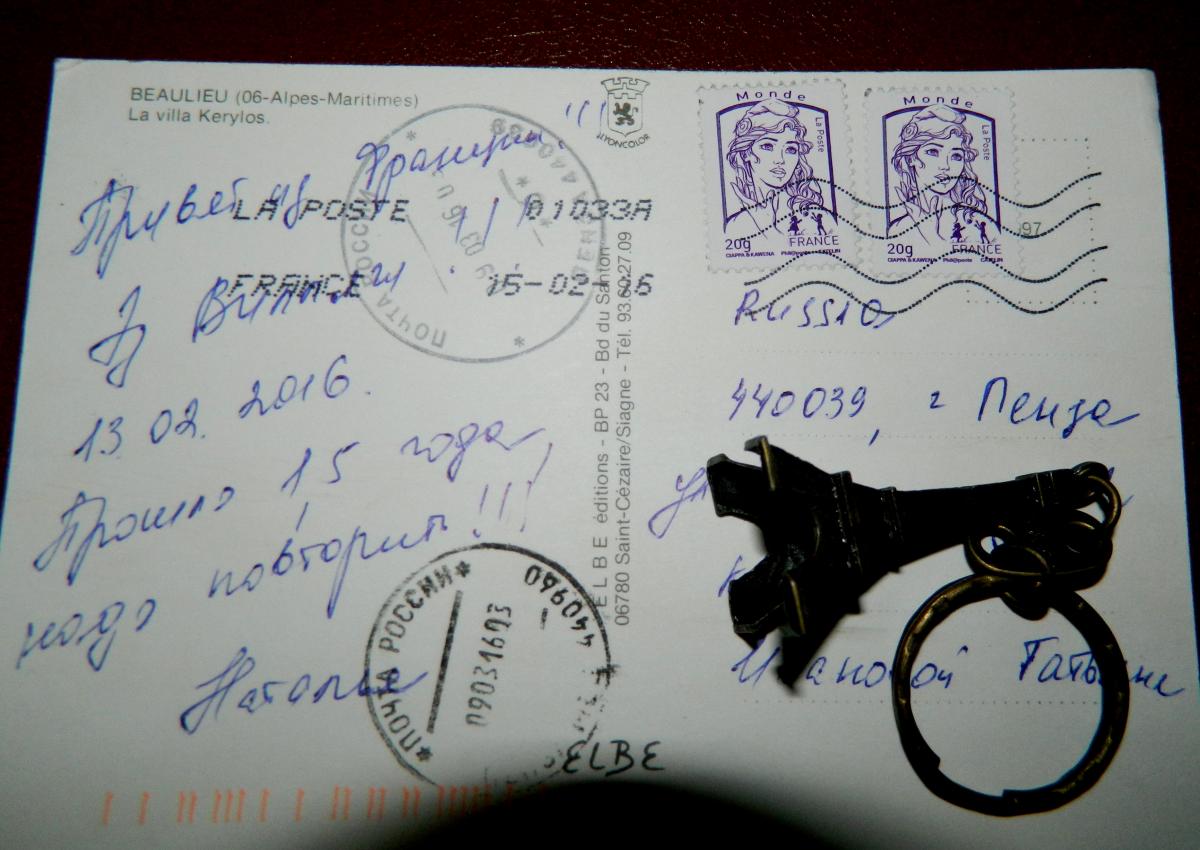 BEAULIEU (06-Alpes-Maritimes)
La villa Kerylos.
LYONCOLOR
Привет из Франции!!!
LA POSTE 01033A
FRANCE 15-02-16
13.02.2016.
Прошло 1,5 года,
надо повторить!!!
Наталья
ПОЧТА РОССИИ
440039
ПОЧТА РОССИИ
09031693
440960
ELBE éditions - BP 23 - Bd du Santon
06780 Saint-Cézaire/Siagne - Tél. 93.60.27.09
ELBE
Monde
La Poste
20g FRANCE
CIAPPA & KAWENA Phil@poste
Monde
La Poste
20g FRANCE
CIAPPA & KAWENA Phil@poste
97
Russia
440039, г Пенза
Татьяне